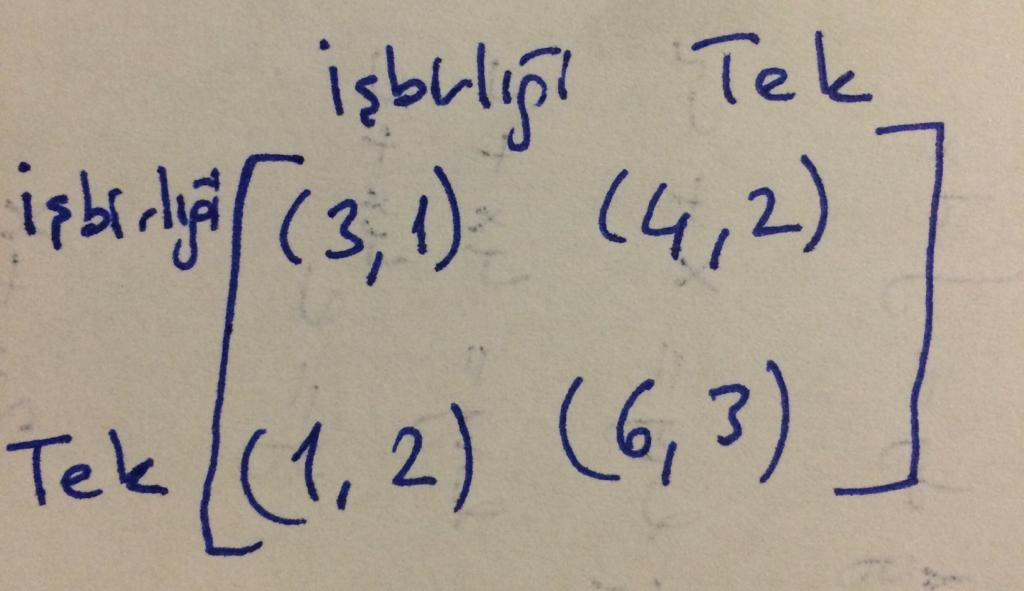 işbirliği Tek
işbirliği (3,1) (4,2)
Tek (1,2) (6,3)